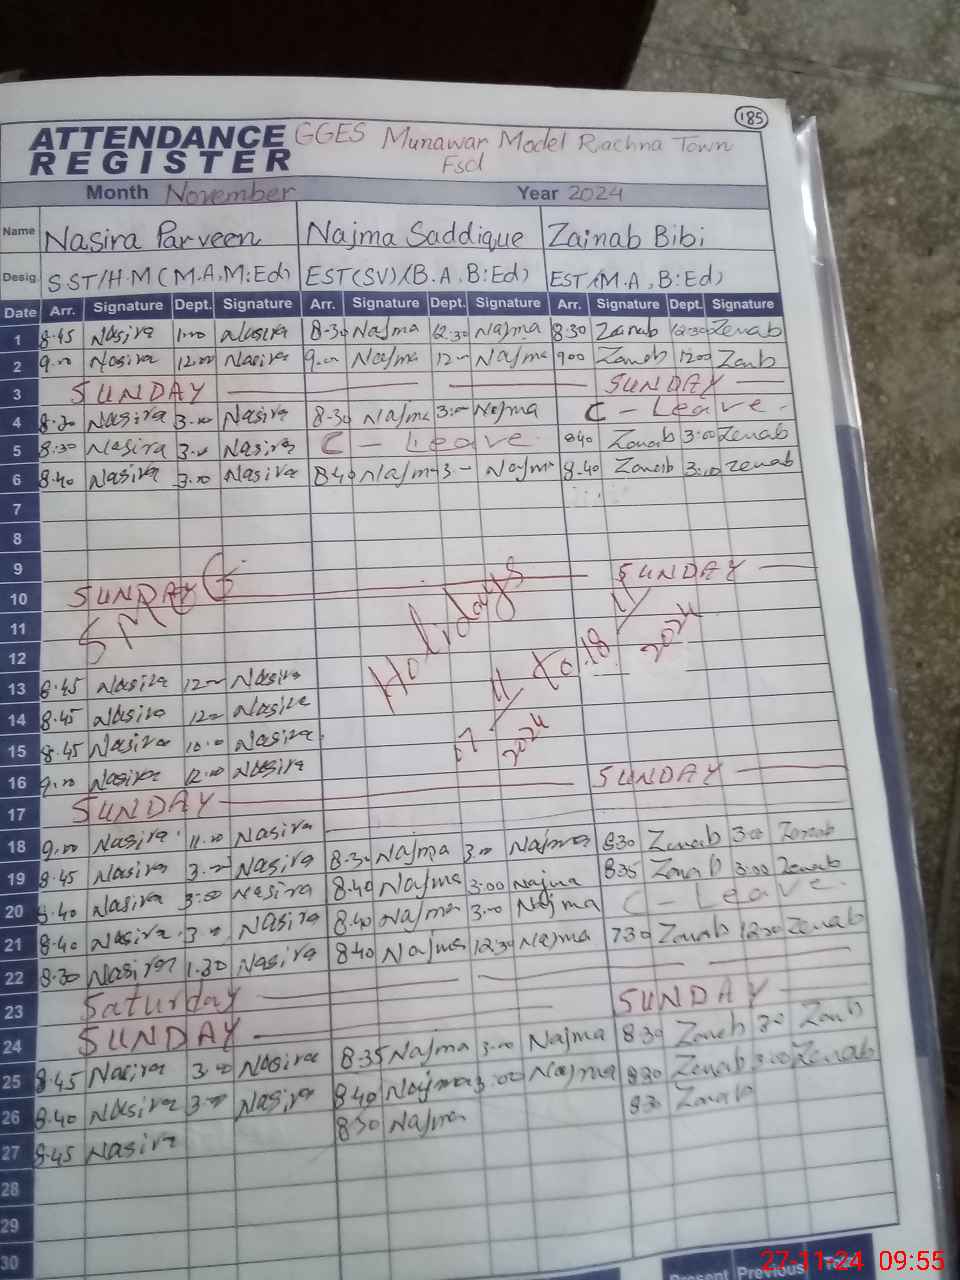 185
ATTENDANCE REGISTER GGES Munawar Model Rachna Town Fsd
Month November Year 2024
Name Nasira Parveen Najma Saddique Zainab Bibi
Desig. S.ST/H.M (M.A, M:Ed) EST(SV)(B.A, B:Ed) EST(M.A, B:Ed)
Date Arr. Signature Dept. Signature Arr. Signature Dept. Signature Arr. Signature Dept. Signature
1 8.45 Nasira 1.00 Nasira 8.30 Najma 12.30 Najma 8.30 Zenab 12.30 Zenab
2 9.00 Nasira 12.00 Nasira 9.00 Najma 12 Najma 9 00 Zanab 12 00 Zanb
3 SUNDAY SUNDAY
4 8.30 Nasira 3.00 Nasira 8.30 Najma 3: Najma C - Leave.
5 8:30 Nasira 3.00 Nasira C - Leave. 8 40 Zanab 3:00 Zenab
6 8.40 Nasira 3.00 Nasira 8.40 Najma 3 Najma 8.40 Zanab 3:00 Zenab
7
8
9
10 SUNDAY SUNDAY
11 SMOG Holidays
12 07/11 to 18/11
2024 2024
13 8.45 Nasira 12 Nasira
14 8.45 Nasira 12 Nasira
15 8.45 Nasira 10.00 Nasira
16 9.00 Nasira 12.00 Nasira
17 SUNDAY SUNDAY
18 9.00 Nasira 11.00 Nasira
19 8.45 Nasira 3.00 Nasira 8.30 Najma 3.00 Najma 8 30 Zenab 3 00 Zenab
20 8.40 Nasira 3:00 Nasira 8.40 Najma 3:00 Najma 8 35 Zanab 3:00 Zenab
21 8.40 Nasira 3.0 Nasira 8.40 Najma 3.00 Najma C - Leave.
22 8.30 Nasira 1.30 Nasira 8 40 Najma 12.30 Najma 7 30 Zanab 12 30 Zenab
23 Saturday
24 SUNDAY SUNDAY
25 8.45 Nasira 3.00 Nasira 8.35 Najma 3.00 Najma 8.30 Zaneb 3 00 Zanb
26 8.40 Nasira 3.00 Nasira 8.40 Najma 3:00 Najma 8 30 Zenab 3.00 Zenab
27 8.45 Nasira 8 30 Najma 8 30 Zanab
28
29
30
Present Previous Total
27-11-24 09:55